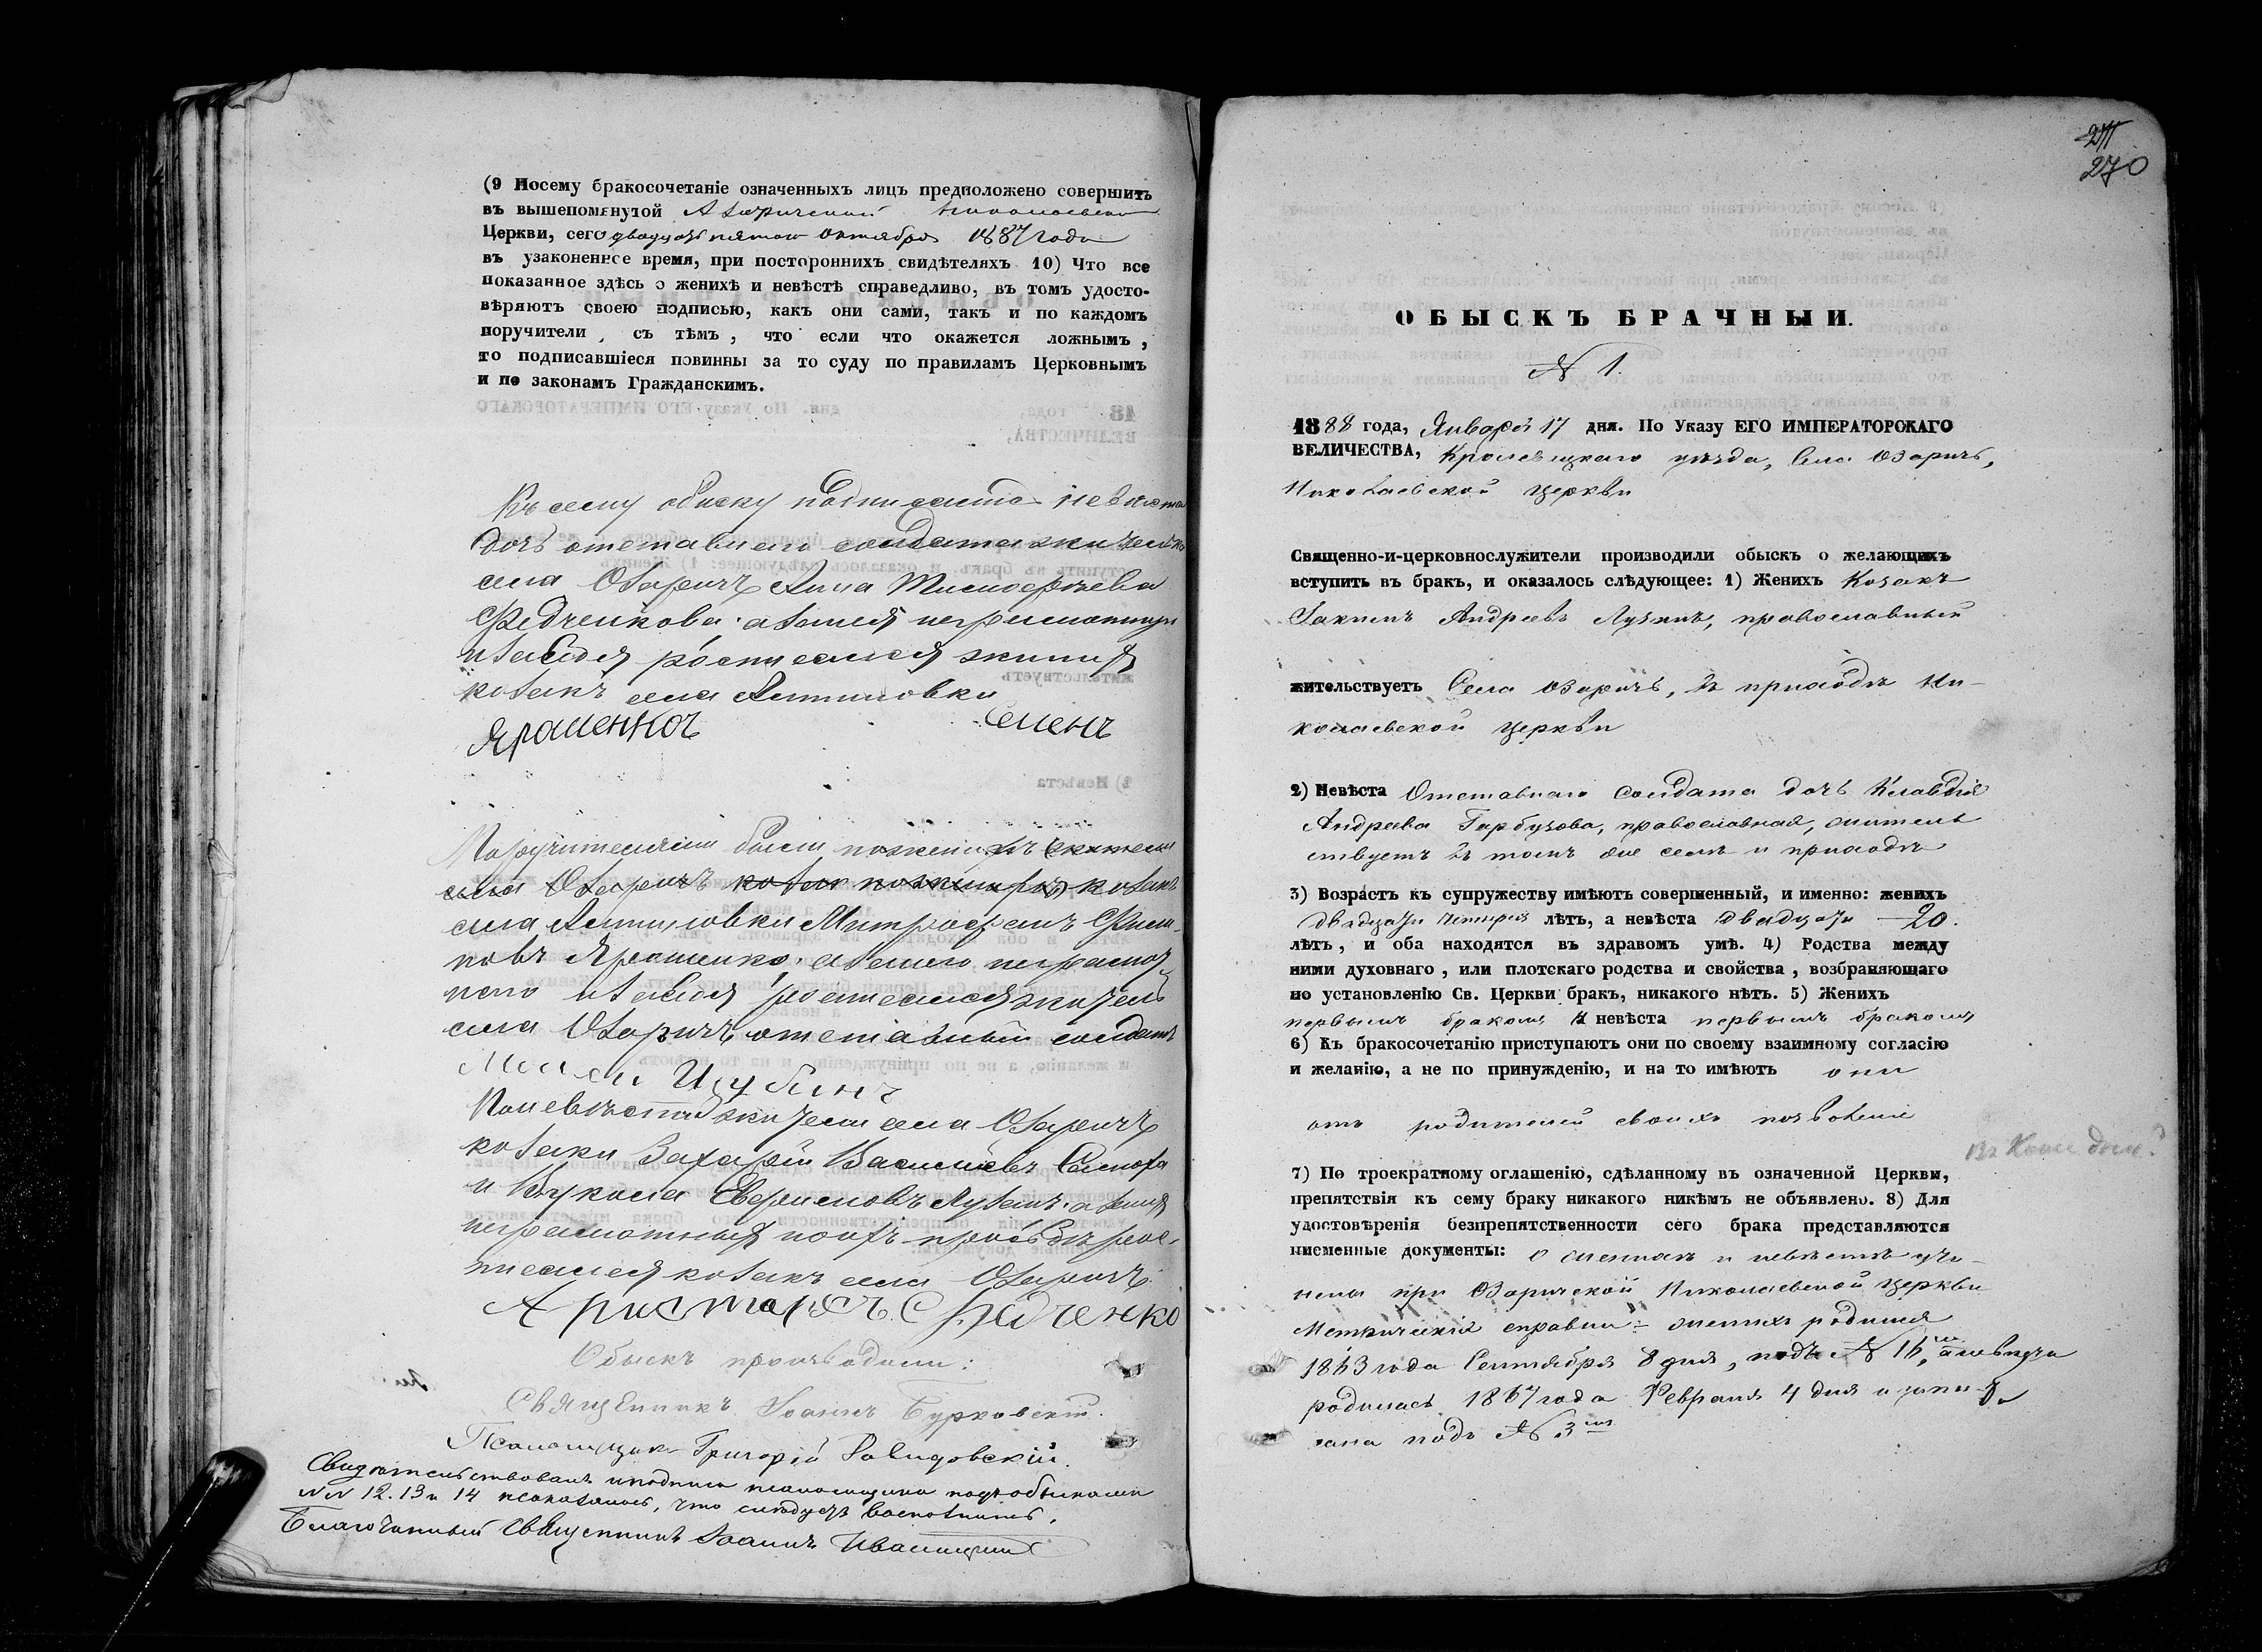 (9 Посему бракосочетаніе означенныхъ лицъ предположено совершить
въ вышепомянутой Николаевской
Церкви, сего двадцать пятого Октября 1887 года
въ узаконенное время, при постороннихъ свидѣтеляхъ 10) Что все
показанное здѣсь о женихѣ и невѣстѣ справедливо, въ томъ удосто-
вѣряютъ своею подписью, какъ они сами, такъ и по каждомъ
поручители, съ тѣмъ, что если что окажется ложнымъ,
то подписавшіеся повинны за то суду по правиламъ Церковнымъ
и по законамъ Гражданскимъ.
Къ сему обыску невѣста
дочь отставнаго солдата
села Озаричъ Анна
Федченкова а за нея неграмотную
и за себя росписался женихъ
козакъ села
Ярошенко Семенъ
Поручителями были по женихѣ
Озаричъ козакъ
села Митрофанъ
Ярошенко, а за него неграмот-
наго и за себя росписался житель
села Озаричъ отставный солдатъ
По невѣстѣ жители села Озаричъ
козаки Захарій Васильевъ
и Вукола Лузанъ, а за нихъ
неграмотныхъ по ихъ просьбѣ рос-
писался козакъ села Озаричъ
Аристархъ Федченко
Обыскъ производили:
Священникъ Іоаннъ Бурковскій.
Псаломщикъ Григорій Давидовскій.
Свидѣтельствовалъ и подписи псаломщика подъ обысками
NN 12. 13 и 14 не оказалось, что слѣдуетъ восполнить.
Благочинный Священникъ Іоаннъ
271
270
ОБЫСКЪ БРАЧНЫЙ.
№ 1.
1888 года, Января 17 дня. По Указу ЕГО ИМПЕРАТОРСКАГО
ВЕЛИЧЕСТВА, Кролевецкаго уѣзда, Села Озаричъ,
Николаевской Церкви
Священно-и-церковнослужители производили обыскъ о желающихъ
вступить въ бракъ, и оказалось слѣдующее: 1) Женихъ Козакъ
Іакимъ Андреевъ Лузанъ, православный
жительствуетъ Села Озаричъ, въ приходѣ Ни-
колаевской Церкви
2) Невѣста Отставнаго Солдата дочь Клавдія
Андреева Гарбузова, православная, жительс
ствуетъ въ томъ же селѣ и приходѣ
3) Возрастъ къ супружеству имѣютъ совершенный, и именно: женихъ
двадцати четырех лѣтъ, а невѣста двадцати — 20.
лѣтъ, и оба находятся въ здравомъ умѣ. 4) Родства между
ними духовнаго, или плотскаго родства и свойства, возбраняющаго
по установленію Св. Церкви бракъ, никакого нѣтъ. 5) Женихъ
первымъ бракомъ и невѣста первымъ бракомъ
6) Къ бракосочетанію приступаютъ они по своему взаимному согласію
и желанію, а не по принужденію, и на то имѣютъ они
отъ родителей своихъ позволеніе
7) По троекратному оглашенію, сдѣланному въ означенной Церкви,
препятствія къ сему браку никакого никѣмъ не объявлено. 8) Для
удостовѣренія безпрепятственности сего брака представляются
писменные документы: о женихѣ и невѣстѣ учи-
нены при Озаричской Николаевской Церкви
Метрическія справки: женихъ родился
1863 года Сентября 8 дня, подъ № 16, а невѣста
родилась 1867 года Февраля 4 дня и запи-
сана подъ № 3